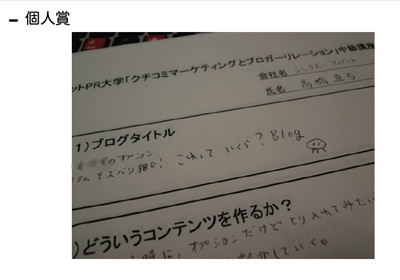 個人賞
ットPR大学「クチコミマーケティングとブロガーリレーション」中級講座
会社名
氏名 高橋
1) ブログタイトル
のオプション
テムをズバリ紹介! これっていくら? Blog
)どういうコンテンツを作るか?
時に、オプションだけどとり入れてみたい
していく。